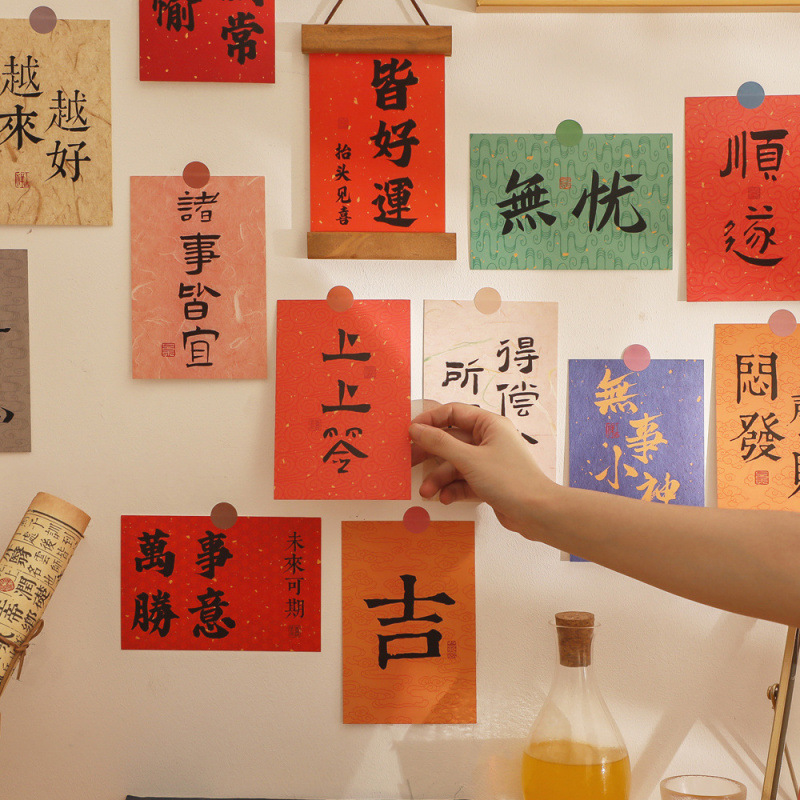 愉
常
越來
越好
皆好運
抬头见喜
無忧
順遂
諸事皆宜
上上签
得偿
所
無事
小神
悶發
萬事
勝意
未來可期
吉